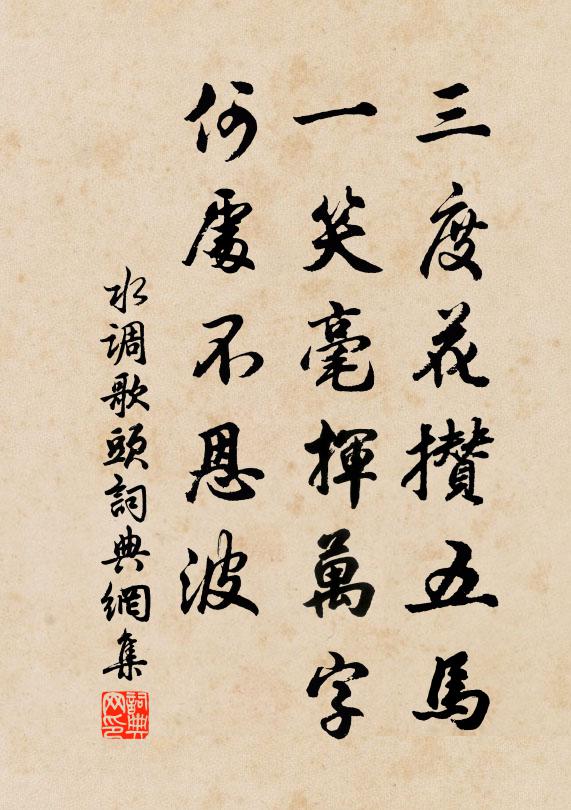 三度花攢五馬
一笑毫揮萬字
何處不恩波
水调歌頭詞典網集
詞典网印